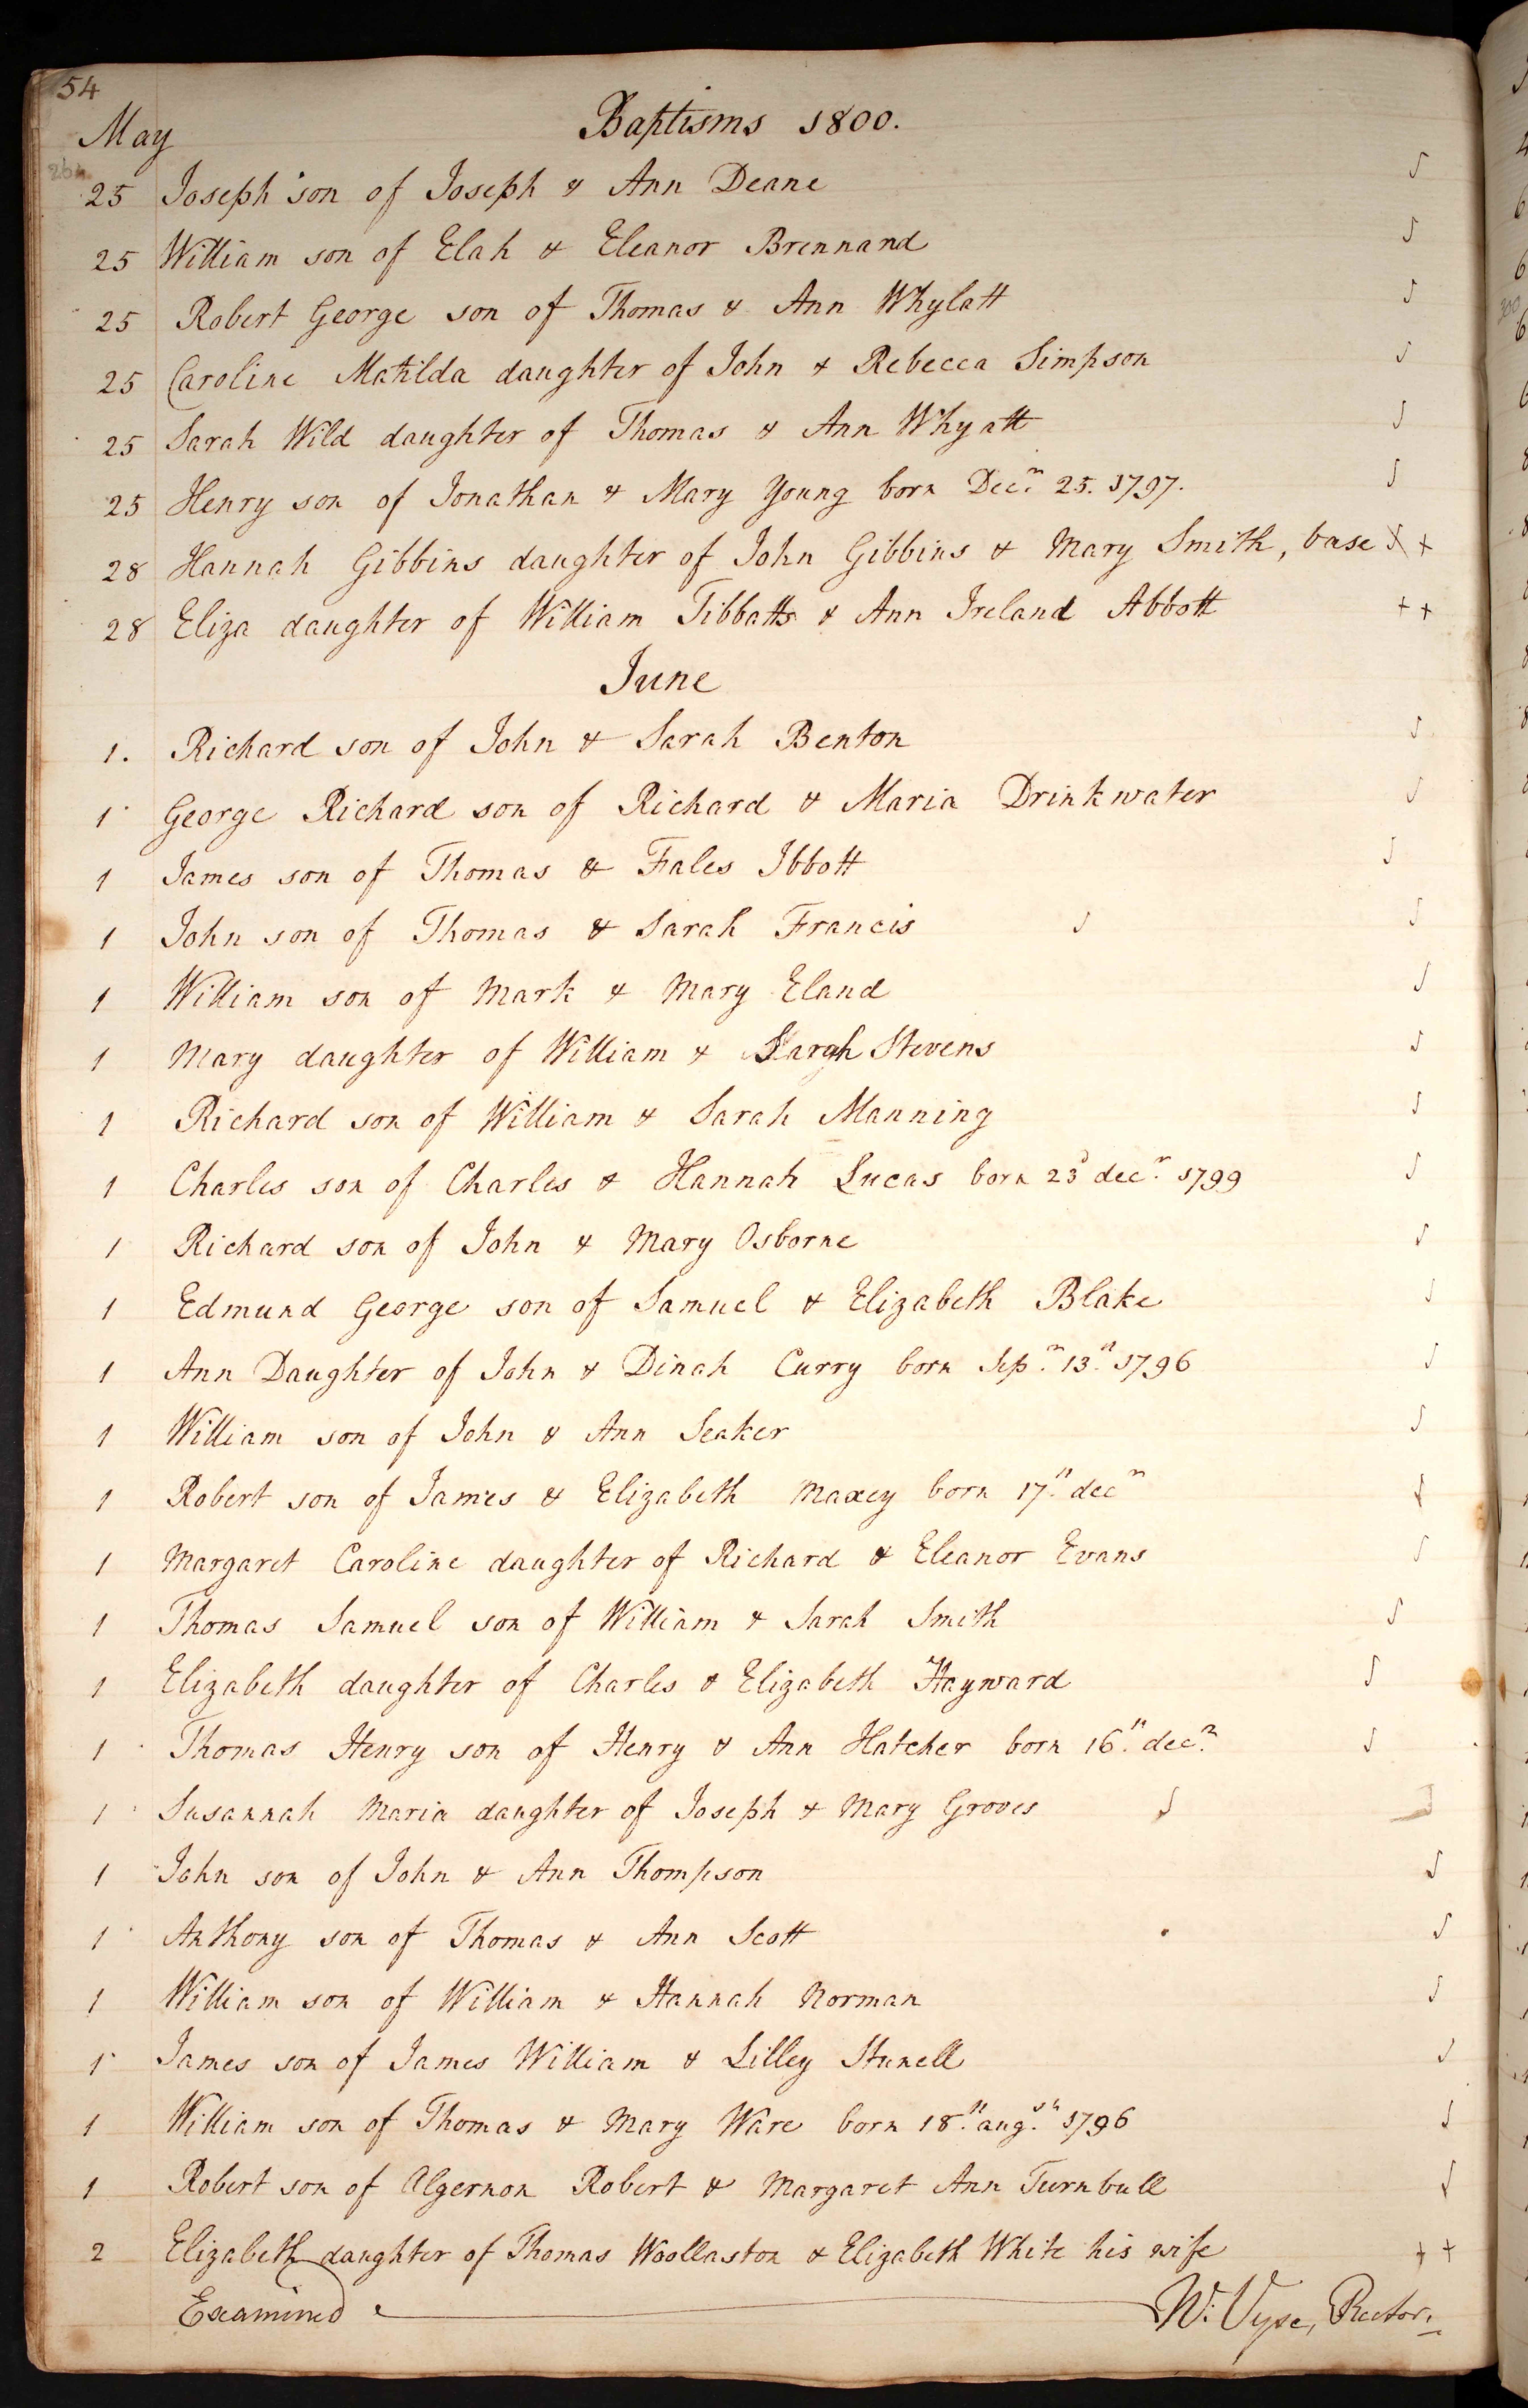 54
Baptisms 1800.
May
25 Joseph son of Joseph & Ann Deane
25 William son of Elah & Eleanor Brennand
25 Robert George son of Thomas & Ann Whylatt
25 Caroline Matilda daughter of John & Rebecca Simpson
25 Sarah Wild daughter of Thomas & Ann Whyatt
25 Henry son of Jonathan & Mary Young born Decr 25. 1797.
28 Hannah Gibbins daughter of John Gibbins & Mary Smith, base
28 Eliza daughter of William Tibbatts & Ann Ireland Abbott
June
1. Richard son of John & Sarah Benton
1 George Richard son of Richard & Maria Drinkwater
1 James son of Thomas & Fales Ibbott
1 John son of Thomas & Sarah Francis
1 William son of Mark & Mary Eland
1 Mary daughter of William & Sarah Stevens
1 Richard son of William & Sarah Manning
1 Charles son of Charles & Hannah Lucas born 23d decr 1799
1 Richard son of John & Mary Osborne
1 Edmund George son of Samuel & Elizabeth Blake
1 Ann Daughter of John & Dinah Curry born Sepr 13th 1796
1 William son of John & Ann Seaker
1 Robert son of James & Elizabeth Maxey born 17th decr
1 Margaret Caroline daughter of Richard & Eleanor Evans
1 Thomas Samuel son of William & Sarah Smith
1 Elizabeth daughter of Charles & Elizabeth Hayward
1 Thomas Henry son of Henry & Ann Hatcher born 16th decr
1 Susannah Maria daughter of Joseph & Mary Groves
1 John son of John & Ann Thompson
1 Anthony son of Thomas & Ann Scott
1 William son of William & Hannah Norman
1 James son of James William & Lilley Stunell
1 William son of Thomas & Mary Ware born 18th augst 1796
1 Robert son of Algernon Robert & Margaret Ann Turnbull
2 Elizabeth daughter of Thomas Woollaston & Elizabeth White his wife
Examined W: Vyse, Rector.